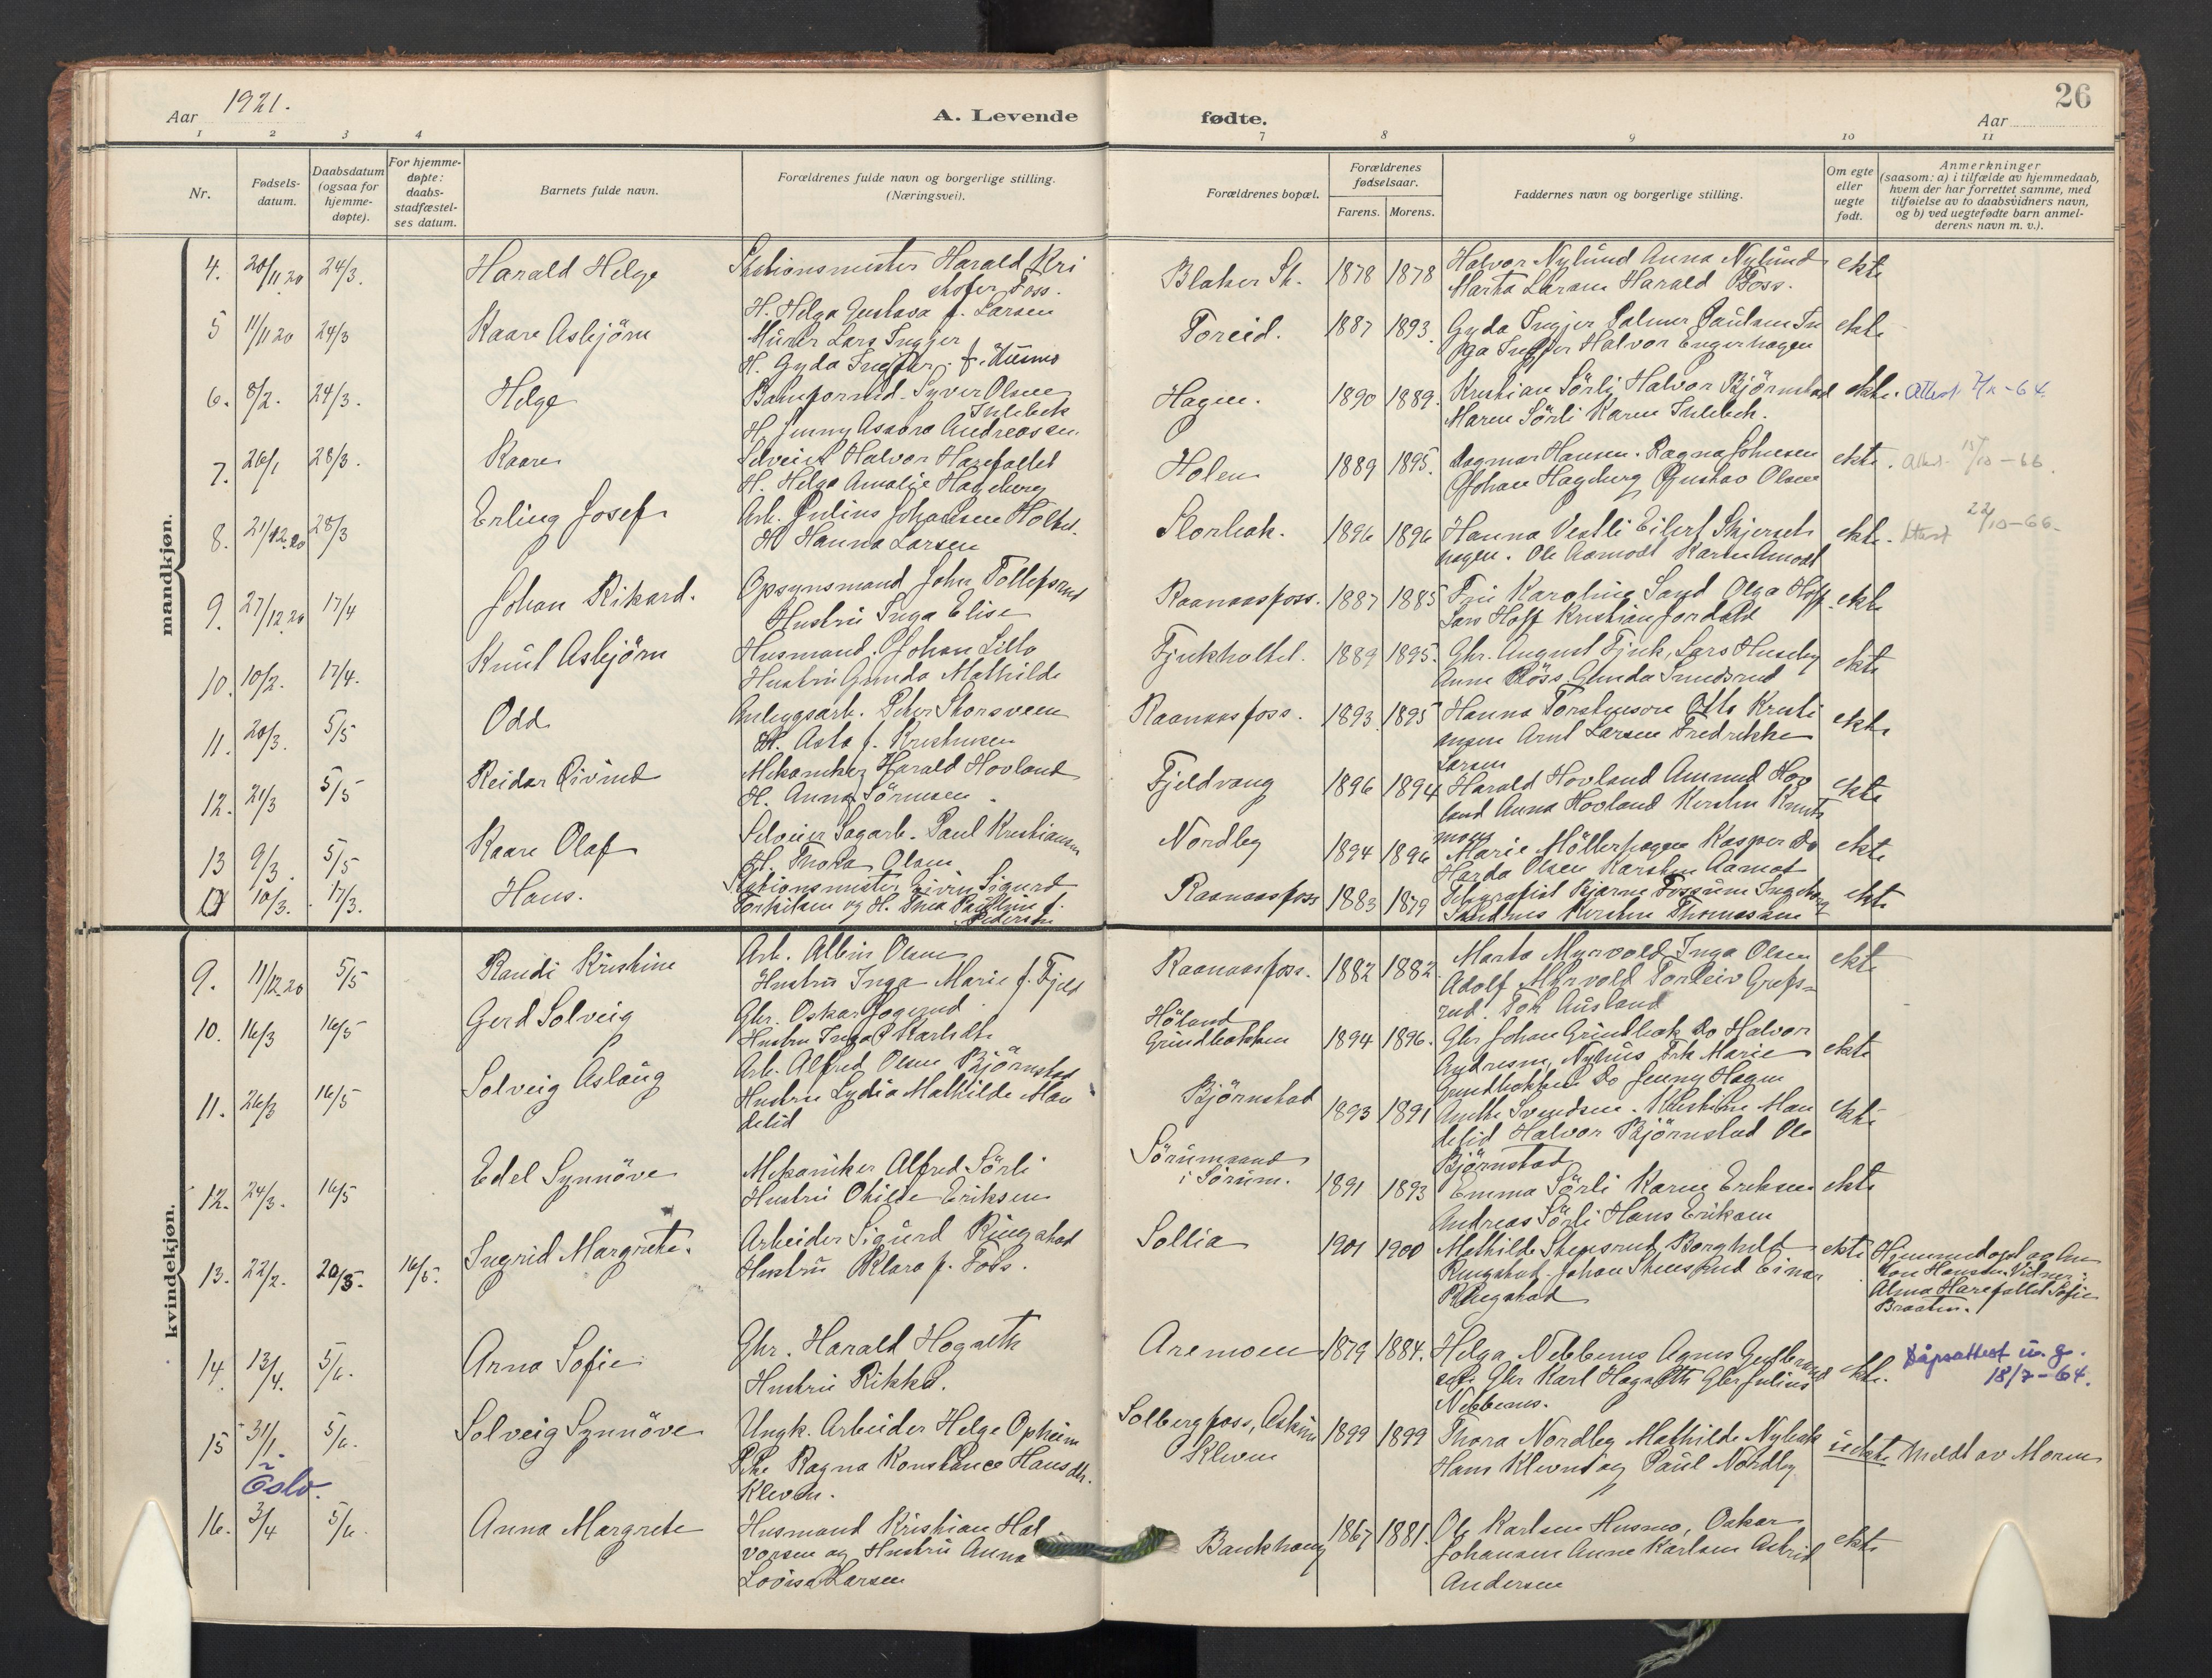 Aar 1921.
A. Levende fødte.
26
Aar
1 2 3 4 7 8 9 10 11
Nr.
Fødsels-
datum.
Daabsdatum
(ogsaa for
hjemme-
døpte).
For hjemme-
døpte:
daabs-
stadfæstel-
ses datum.
Barnets fulde navn.
Forældrenes fulde navn og borgerlige stilling.
(Næringsvei).
Forældrenes bopæl.
Forældrenes
fødselsaar.
Farens. Morens.
Faddernes navn og borgerlige stilling.
Om egte
eller
uegte
født.
Anmerkninger
(saasom: a) i tilfælde av hjemmedaab,
hvem der har forrettet samme, med
tilføielse av to daabsvidners navn,
og b) ved uegtefødte barn anmel-
derens navn m. v.).
mandkjøn.
4. 20/11 20 24/3. Harald Helge
Stationsmester Harald Kri
stofer Foss.
H. Helga Gustava f. Larsen
Blaker St. 1878 1878
Halvor Nylund Anna Nylund
Marta Larsen Harald Foss.
ekte
5 11/11 20 24/3 Kaare Asbjörn
Murer Lars Ingjer
H. Gyda Ingjer. f. Husmo
Foreid. 1887 1893.
Gyda Ingjer Palmer Paulsen In
ga Ingjer Halvor Engerhagen
ekte
6. 8/2. 24/3. Helge
Syver Olsen
H. Jenny Andreassen.
Hagen. 1890 1889.
Kristian Sörli Halvor Björnstad
Maren Sörli Karen
ekte. Attest -64
7. 26/1 28/3. Kaare
Selveier Halvor Harefallet
H. Helga Amalie Hageberg
Holen 1889 1895.
Dagmar Hansen. Ragna Johnsen
Johan Hagberg Gustav Olsen
ekte. 15/10-66.
8. 21/12 20 28/3 Erling Josef
Arb. Julius Johansen Holtet.
H. Hanna Larsen
1896 1896
Hanna Vestli Eilert Skjerset
hagen. Ole Aamodt Karen Amodt
ekte. Attest 22/10-66-
9. 27/12 20 17/4 Johan Rikard.
Opsynsmand John Tollefsrud
Hustru Inga Elise
Raanaasfoss. 1887 1885
Fru Karoline Sand Olga Hoff
Lars Hoff Kristian Jordahl
ekte
10. 10/2. 17/4. Knut Asbjörn
Husmand. Johan Lillo
Hustru Gunda Mathilde
1889 1895.
Gbr. August Fjuk, Lars Huseby
Anne Röss Gunda Smedsrud
ekte
11. 20/3. 5/5 Odd
Anleggsarb. Peter Thorsveen
H. Asta f. Kristensen
Raanaasfoss. 1893. 1895
Hanna Torstensen Otto Kristi
ansen Arnt Larsen Fredrikke
Larsen
ekte
12. 21/3 5/5 Reidar Eivind
Mekaniker Harald Hovland
H. Anna Sörensen
Fjeldvang 1896 1894
Harald Hovland Amund Hov
land Anna Hovland Kirsten Knuts
moen
ekte
13 9/3. 5/5 Kaare Olaf
Selveier Sagarb. Paul Kristiansen
H. Thora Olsen
Nordby 1894 1896
Marie Möllerhagen Kasper Do
Harda Olsen Karsten Aamot
ekte
10/3. 17/3. Hans.
Stationsmester Eivin Sigurd
Torkilsen og H. Thea Pauline f.
Pedersen
Raanaasfoss 1883 1879
Telegrafist Bjarne Fossum Ingeborg
Kirsten Thomassen
ekte
kvindekjøn.
9. 11/12 20 5/5 Randi Kristine
Arb. Albin Olsen
Hustru Inga Marie f. Fjeld
Raanaasfoss. 1882 1882.
Marta Myrvold Inga Olsen
Adolf Myrvold Torleiv Grefs-
rud. Tor Ausland
ekte
10. 16/3 16/5 Gerd Solveig
Gbr. Oskar Fogerud
Hustru Inga Karlsdt.
Höland
Grindbakken 1894 1896.
Gbr Johan Grindbak Do Halvor
Andresen, Nyhus Frk Marie
Grindbakken Do Jenny Hagen
ekte
11. 26/3 16/5 Solveig Aslaug
Arb. Alfred Olsen Björnstad
Hustru Lydia Mathilde Man
delid
Björnstad 1893 1891
Anette Svendsen. Kristine Man
delid Halvor Björnstad Ole
Björnstad
ekte
12. 24/3. 16/5 Edel Synnöve
Mekaniker Alfred Sörli
Hustru Otilie Eriksen
Sörumsand
i Sörum. 1891 1893
Emma Sörli Karen Eriksen
Andreas Sörli Hans Eriksen
ekte
13. 22/2. 20/3. 16/5. Ingrid Margrete.
Arbeider Sigurd Ringstad
Hustru Klara f. Foss.
Sollia 1901 1900
Mathilde Stensrud Borghild
Ringstad. Johan Stensrud Einar
Ringstad
ekte
Hjemmedöpt av An
ton Hansen. Vidner:
Alma Harefallet Sofie
Braaten.
14 13/4. 5/6. Anna Sofie
Gbr. Harald Hogseth
Hustru Rikka.
Aremoen 1879 1884.
Helga Nebbenes Agnes Gulbrand
sen Gbr Karl Hogseth Gbr Julius
Nebbenes.
ekte. Dåpsattest u. g.
18/7-64.
15 31/1. 5/6. Solveig Synnöve
Oslo.
Ungk. Arbeider Helge Opheim
Pike Ragna Konstance Hansdtr.
Kleven.
Solbergfoss, Askim
Kleven 1899 1899
Thora Nordby Mathilde Nybak
Hans Kleven og Paul Nordby
uekte Meldt av Moren
16. 3/4 5/6. Anna Margrete
Husmand Kristian Hal
vorsen og Hustru Anna
Lovise Larsen
Baukhaug 1867 1881.
Ole Karlsen Husmo, Oskar
Johansen Anne Karlsen Astrid
Andersen
ekte